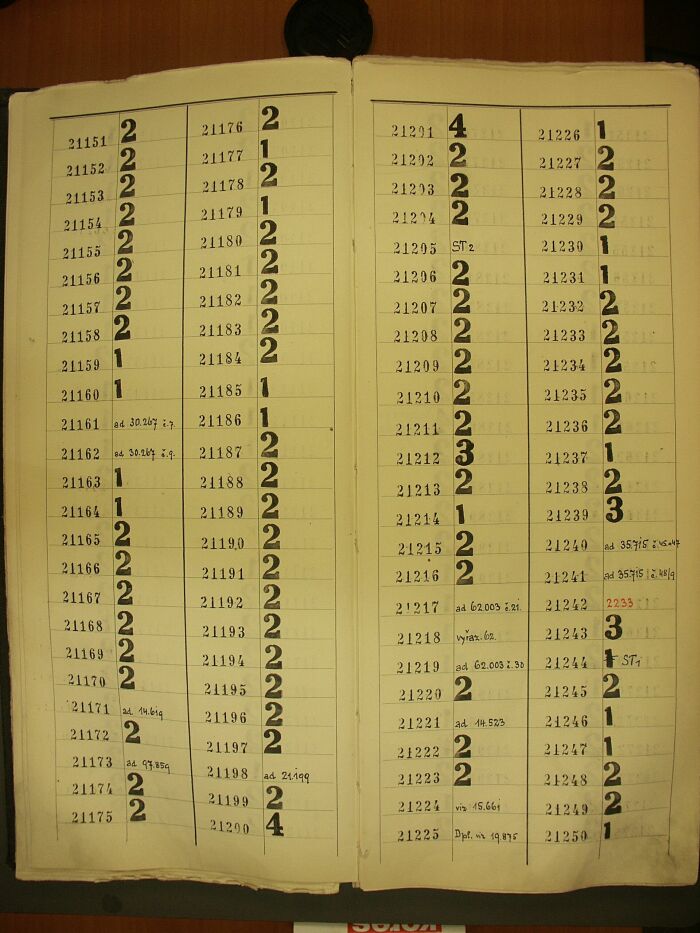 21151 2
21152 2
21153 2
21154 2
21155 2
21156 2
21157 2
21158 2
21159 1
21160 1
21161 ad 30.267 č.7.
21162 ad 30.267 č.9.
21163 1
21164 1
21165 2
21166 2
21167 2
21168 2
21169 2
21170 2
21171 ad 14.619
21172 2
21173 ad 97.859
21174 2
21175 2
21176 2
21177 1
21178 2
21179 1
21180 2
21181 2
21182 2
21183 2
21184 2
21185 1
21186 1
21187 2
21188 2
21189 2
21190 2
21191 2
21192 2
21193 2
21194 2
21195 2
21196 2
21197 2
21198 ad 21.199
21199 2
21200 4
21201 4
21202 2
21203 2
21204 2
21205 ST2
21206 2
21207 2
21208 2
21209 2
21210 2
21211 2
21212 3
21213 2
21214 1
21215 2
21216 2
21217 ad 62.003 č.21.
21218 vyřaz. 62.
21219 ad 62.003 č.30
21220 2
21221 ad 14.523
21222 2
21223 2
21224 viz 15.661
21225 Dpl. viz 19.875
21226 1
21227 2
21228 2
21229 2
21230 1
21231 1
21232 2
21233 2
21234 2
21235 2
21236 2
21237 1
21238 2
21239 3
21240 ad 35.715 č.45-47
21241 ad 35.715 č.48/9
21242 2233
21243 3
21244 1 ST1
21245 2
21246 1
21247 1
21248 2
21249 2
21250 1